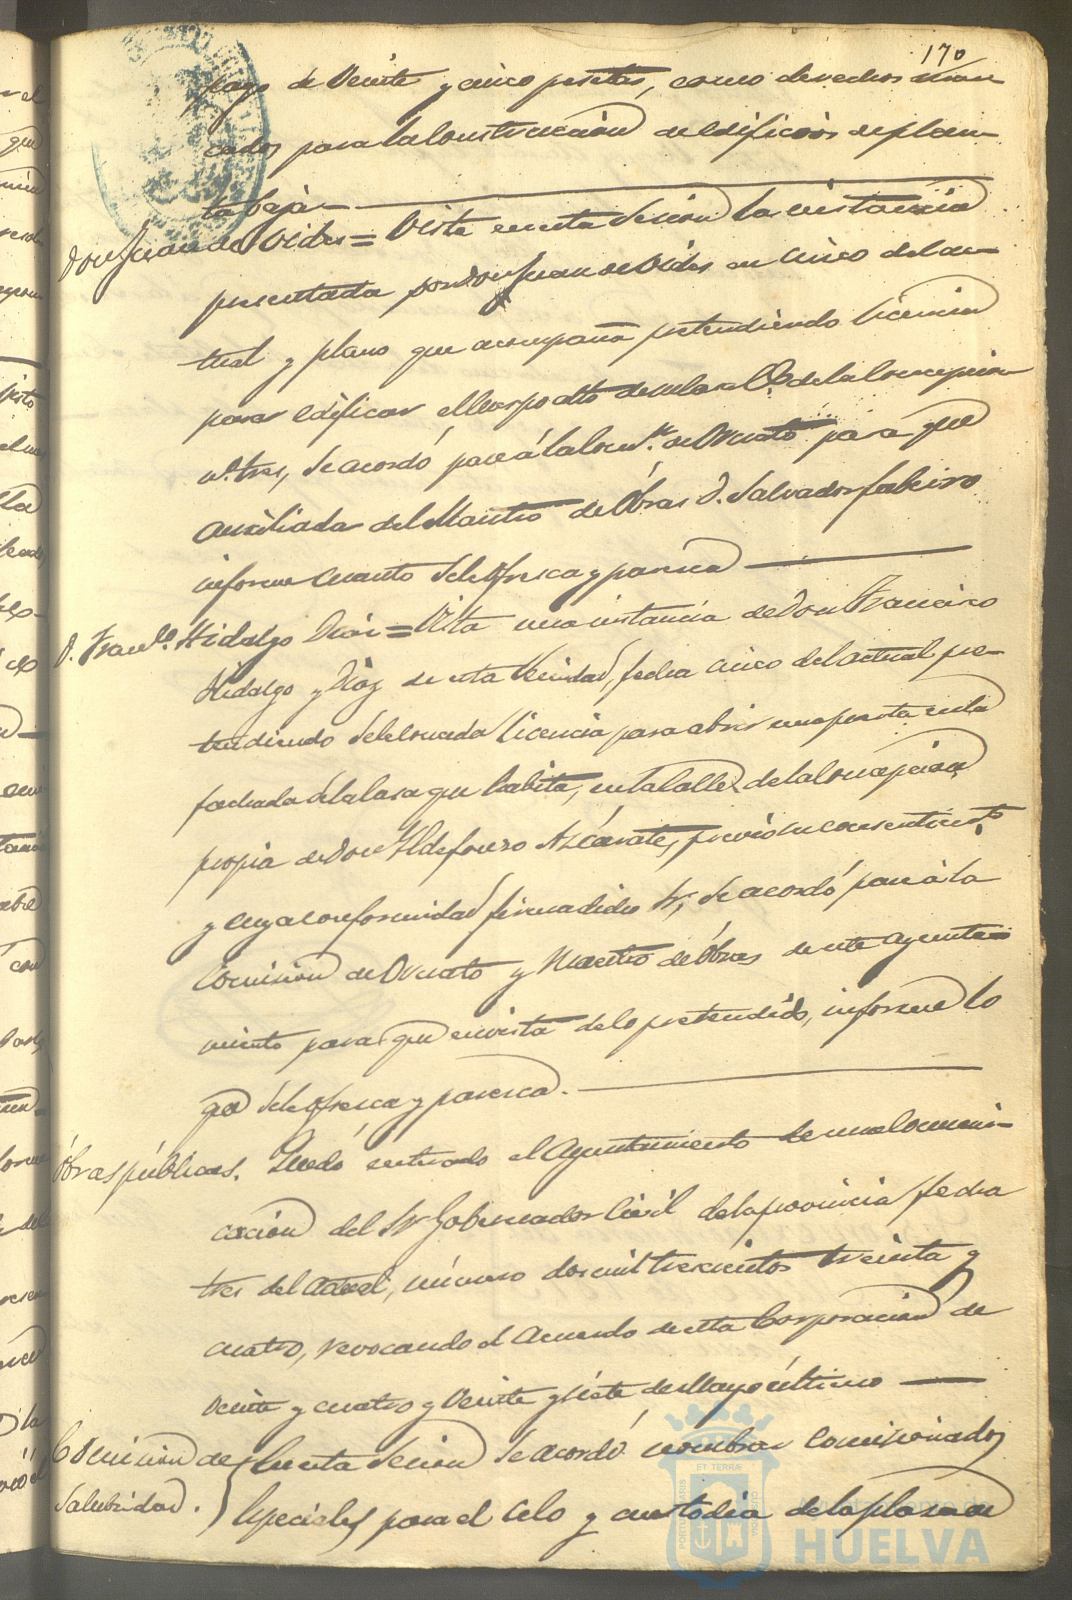 170
pago de Veinte y cinco pesetas, como derechos mar-
cados para la Construccion de edificios de plan-
ta baja.
Don Juan de Vides = Vista en esta Sesion la instancia
presentada por Don Juan de Vides en cinco del ac-
tual y plano que acompaña pretendiendo licencia
para edificar el cuerpo alto de su casa C.e de la Concepcion
n.º tres, Se acordó pase á la Com.n de Ornato para que
auxiliada del Maestro de Obras D. Salvador
informe cuanto Se le ofresca y paresca
D. Fran.co Hidalgo Diaz = Vista una instancia de Don Francisco
Hidalgo y Diaz de esta Vecindad, fecha cinco del actual pre-
tendiendo Se le conceda licencia para abrir una puerta en la
fachada de la Casa que habita, en la Calle de la Concepcion
propia de Don Ildefonso Azcárate, previo su consentimto
y cuya conformidad firma dicho Sr, Se acordó pase á la
Comision de Ornato y Maestro de Obras de este Ayunta-
miento para que en vista de lo pretendido, informe lo
que Se le ofresca y paresca.
Obras públicas. Quedó enterado el Ayuntamiento de una Comuni-
cacion del Sr Gobernador Civil de la provincia, fecha
tres del actual, número dos mil trescientos treinta y
cuatro, revocando el acuerdo de esta Corporacion de
Veinte y cuatro y Veinte y siete de Mayo último
Comision de } En esta Sesion Se acordó nombrar Comisionados
Salubridad. } Especiales para el Celo y custodia de la plaza de
Ayuntamiento de
HUELVA